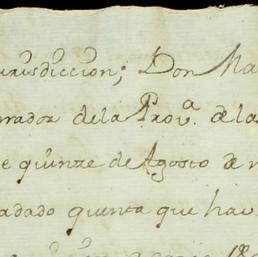 jurisdiccion; Don Ma
rador dela Prov.ᵃ dela
e quinze de Agosto de m
adado quenta que hav